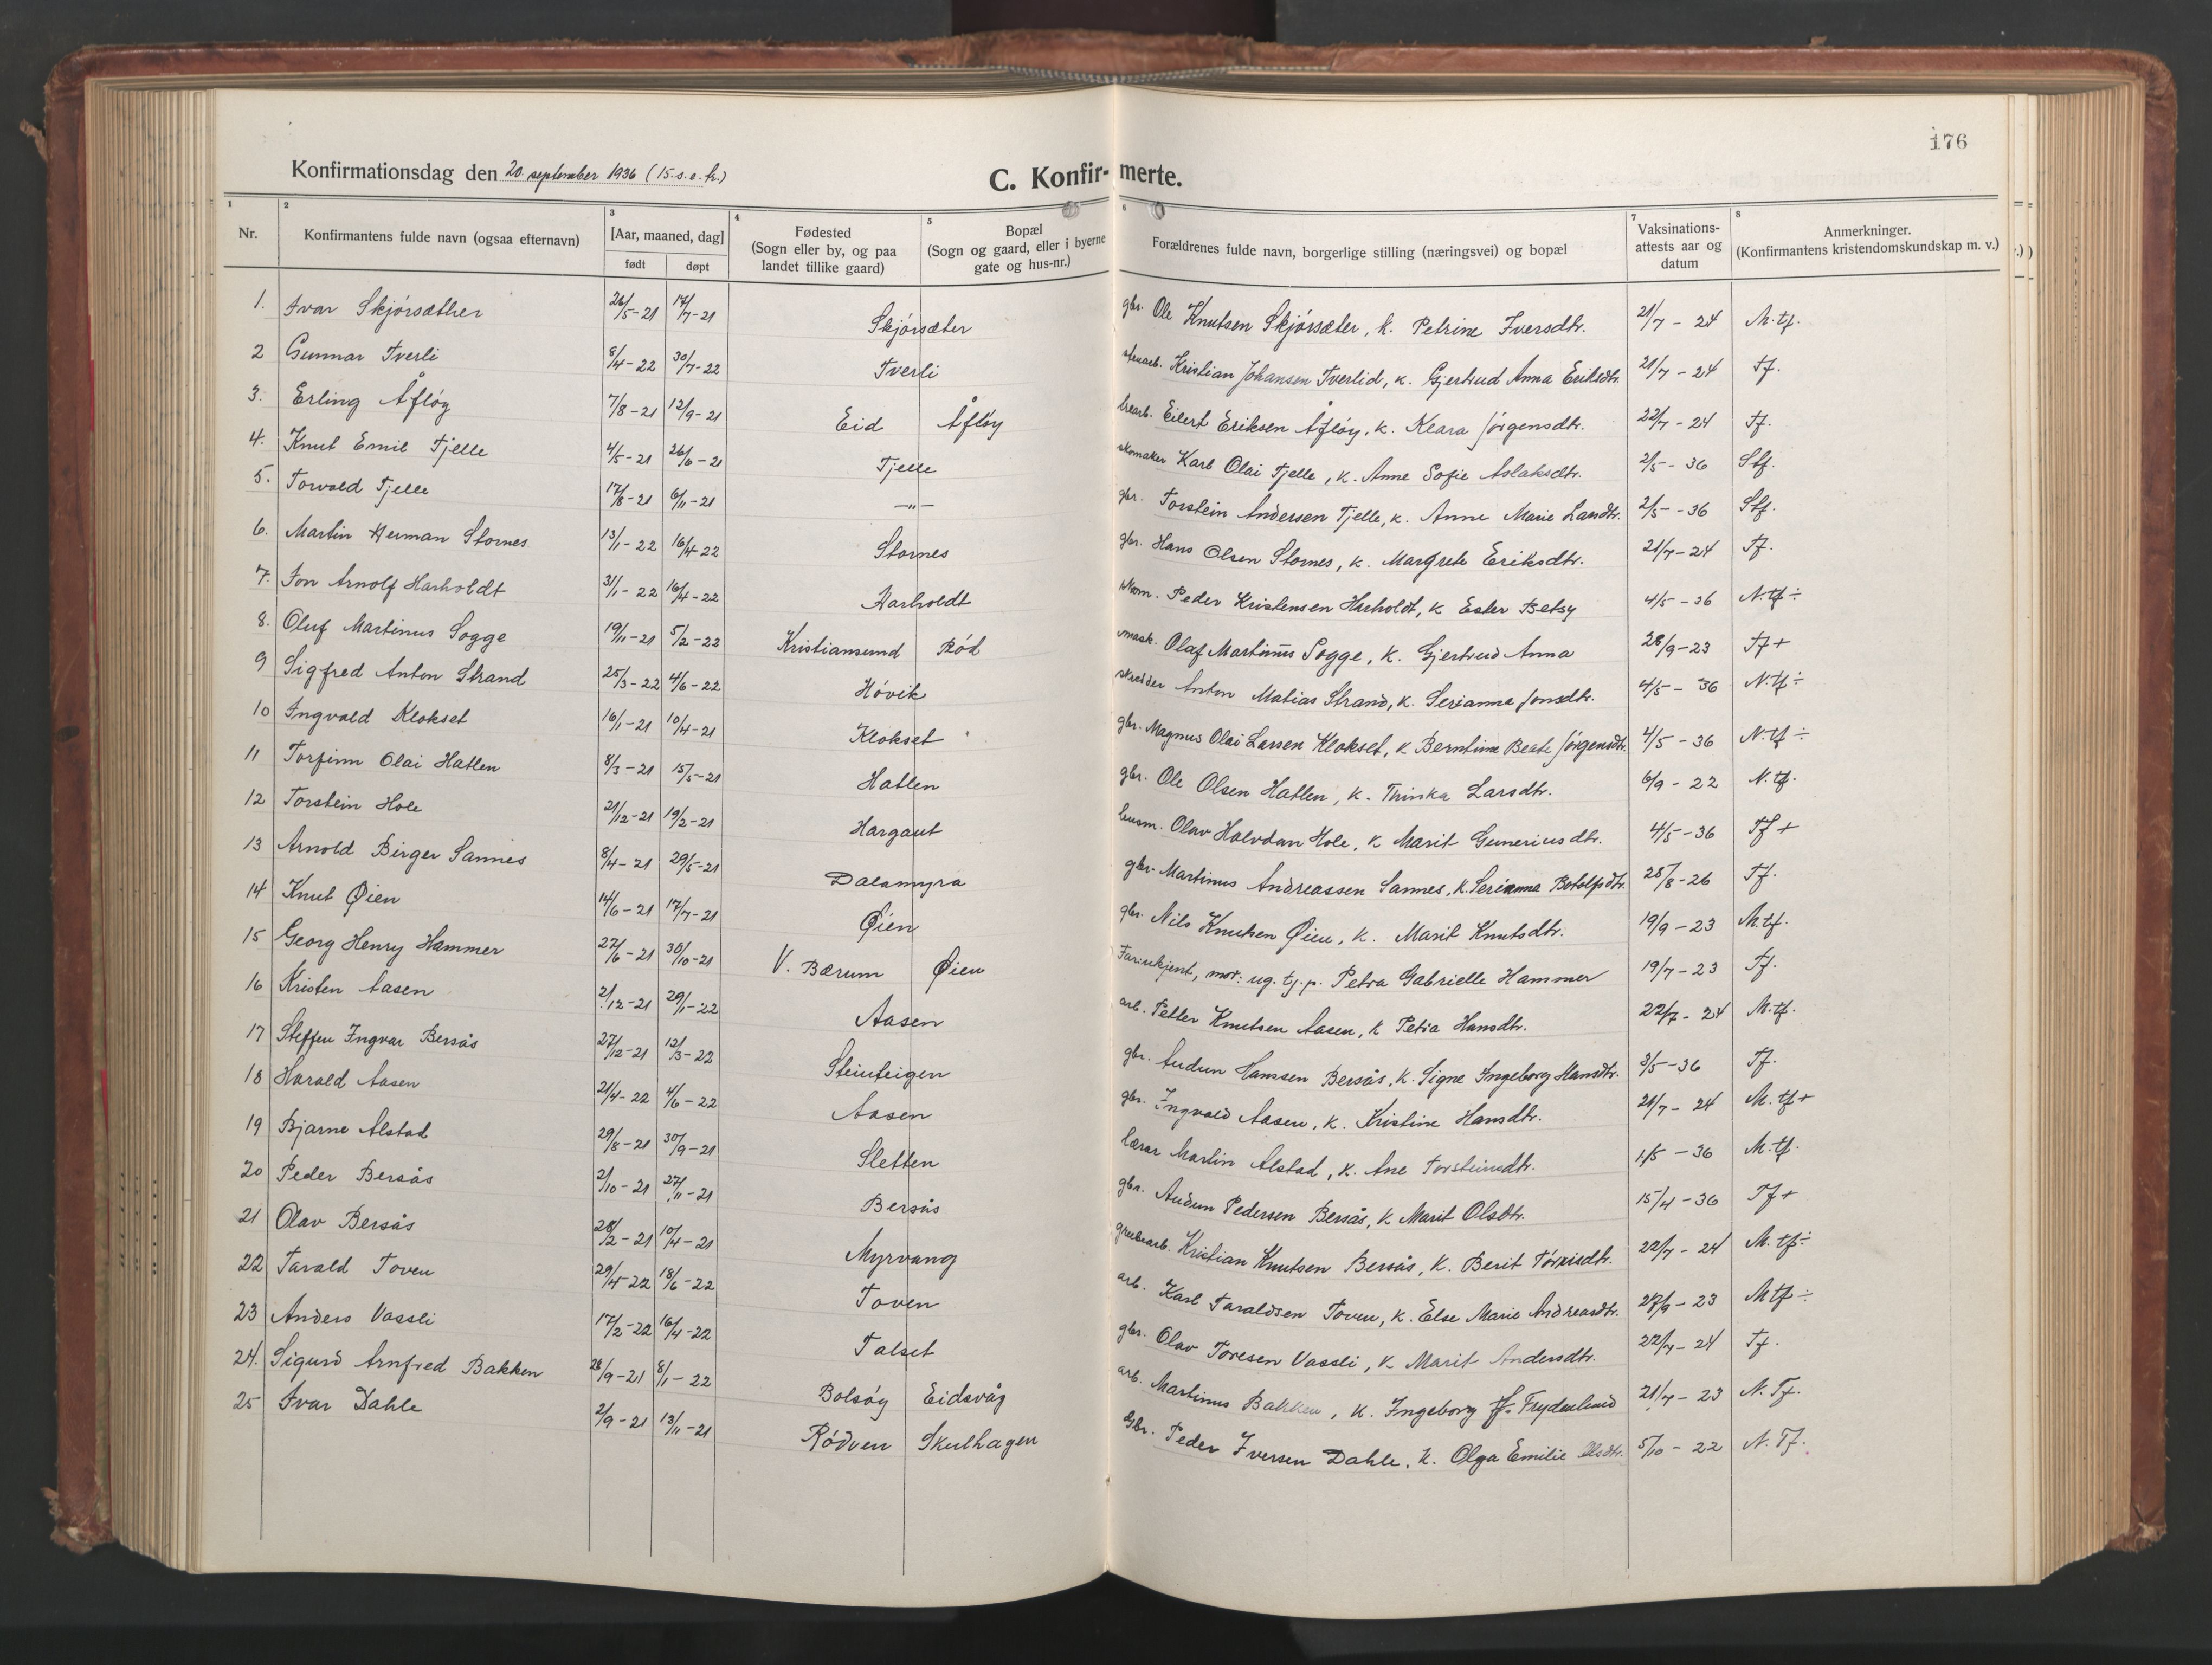 176
Konfirmationsdag den 20. september 1936 (15. s. e. tr.)
C. Konfir- merte.
1 2 3 4 5 6 7 8
Nr. Konfirmantens fulde navn (ogsaa efternavn) [Aar, maaned, dag] født døpt Fødested (Sogn eller by, og paa landet tillike gaard) Bopæl (Sogn og gaard, eller i byerne gate og hus-nr.) Forældrenes fulde navn, borgerlige stilling (næringsvei) og bopæl Vaksinations-attests aar og datum Anmerkninger. (Konfirmantens kristendomskundskap m. v.)
1. Ivar Skjørsæther 26/5-21 17/7-21 Skjørsæter gbr. Ole Knutsen Skjørsæter, k. Petrine Iversdtr. 21/7 - 24 M.tf.
2 Gunnar Tverli 8/4-22 30/7-22 Tverli Kristian Johansen Tverlid, k. Gjertrud Anna Eriksdtr. 21/7 - 24 Tf.
3. Erling Åfløy 7/8-21 12/9-21 Eid Åfløy Eilert Eriksen Åfløy, k. Klara Jørgensdtr. 22/7 - 24 Tf.
4. Knut Emil Tjelle 4/5-21 26/6-21 Tjelle skomaker Karl Olai Tjelle, k. Anne Sofie Aslaksdtr. 2/5 - 36 Stf.
5. Torvald Tjelle 17/8-21 6/11-21 —"— gbr. Torstein Andersen Tjelle, k. Anne Marie Larsdtr. 2/5 - 36 Stf.
6. Martin Herman Stornes 13/1-22 16/4-22 Stornes gbr. Hans Olsen Stornes, k. Margrete Eriksdtr. 21/7-24 Tf.
7. Jon Arnolf Harholdt 31/1-22 16/4-22 Harholdt Peder Kristensen Harholdt, k Ester Betsy 4/5-36 N.tf ÷
8. Oluf Martinus Sogge 19/11-21 5/2-22 Kristiansund Rød mask. Olaf Martinus Sogge, k. Gjertrud Anna 28/9-23 Tf +
9 Sigfred Anton Strand 25/3-22 4/6-22 Høvik skredder Anton Matias Strand, k. Serianna Jonsdtr. 4/5 - 36 N.tf ÷
10 Ingvald Klokset 16/1-21 10/4-21 Klokset gbr. Magnus Olai Larsen Klokset, k Berntine Beate Jørgensdtr. 4/5 - 36 N.tf ÷
11 Torfinn Olai Hatlen 8/3-21 15/5-21 Hatlen gbr. Ole Olsen Hatlen, k. Thinka Larsdtr. 6/9 - 22 N.tf.
12 Torstein Hole 21/12-21 19/2-21 Hargaut lensm. Olav Halvdan Hole, k Marit Guneriusdtr. 4/5-36 Tf +
13 Arnold Birger Sannes 8/4-21 29/5-21 Dalamyra gbr. Martinus Andreassen Sannes, k. Serianna Botolfsdtr. 28/8-26 Tf.
14 Knut Øien 14/6-21 17/7-21 Øien gbr. Nils Knutsen Øien, k. Marit Knutsdtr. 19/9-23 M.tf.
15 Georg Henry Hammer 27/6-21 30/10-21 V. Bærum Øien Far: ukjent, mor: ug. tj.p. Petra Gabrielle Hammer 19/7-23 Tf.
16 Kristen Aasen 2/12-21 29/1-22 Aasen arb. Petter Knutsen Aasen, k Petra Hansdtr. 22/7 - 24 M.tf.
17 Steffen Ingvar Bersås 27/12-21 12/3-22 Steinteigen gbr. Audun Hansen Bersås, k. Signe Ingeborg Hansdtr. 3/5-36 Tf.
18 Harald Aasen 21/4-22 4/6-22 Aasen gbr. Ingvald Aasen, k. Kristine Hansdtr. 21/7 - 24 M.tf+
19 Bjarne Alstad 29/8-21 30/9-21 Sletten lærar Martin Alstad, k. Ane Torsteinsdtr. 1/5 - 36 M.tf.
20 Peder Bersås 2/10-21 27/11-21 Bersås gbr. Audun Pedersen Bersås, k Marit Olsdtr. 15/4-36 Tf+
21 Olav Bersås 28/2-21 10/4-21 Myrvang Kristian Knutsen Bersås, k. Berit 22/7 - 24 M.tf÷
22 Tarald Toven 29/4-22 18/6-22 Toven arb. Karl Taraldsen Toven, k. Else Marie Andreasdtr. 27/9-23 Mtf÷
23 Anders Vassli 17/2-22 16/4-22 Talset gbr. Olav Toresen Vassli, k Marit Andersdtr. 22/7 - 24 Tf.
24. Sigurd Arnfred Bakken 28/9-21 8/1-22 Bolsøy Eidsvåg arb. Martinus Bakken, k. Ingeborg f. Frydenlund 21/7 - 23 N. Tf.
25 Ivar Dahle 2/9-21 13/11-21 Rødven Skulhagen Gbr. Peder Iversen Dahle, k. Olga Emilie Olsdtr. 5/10 - 22 N. Tf.